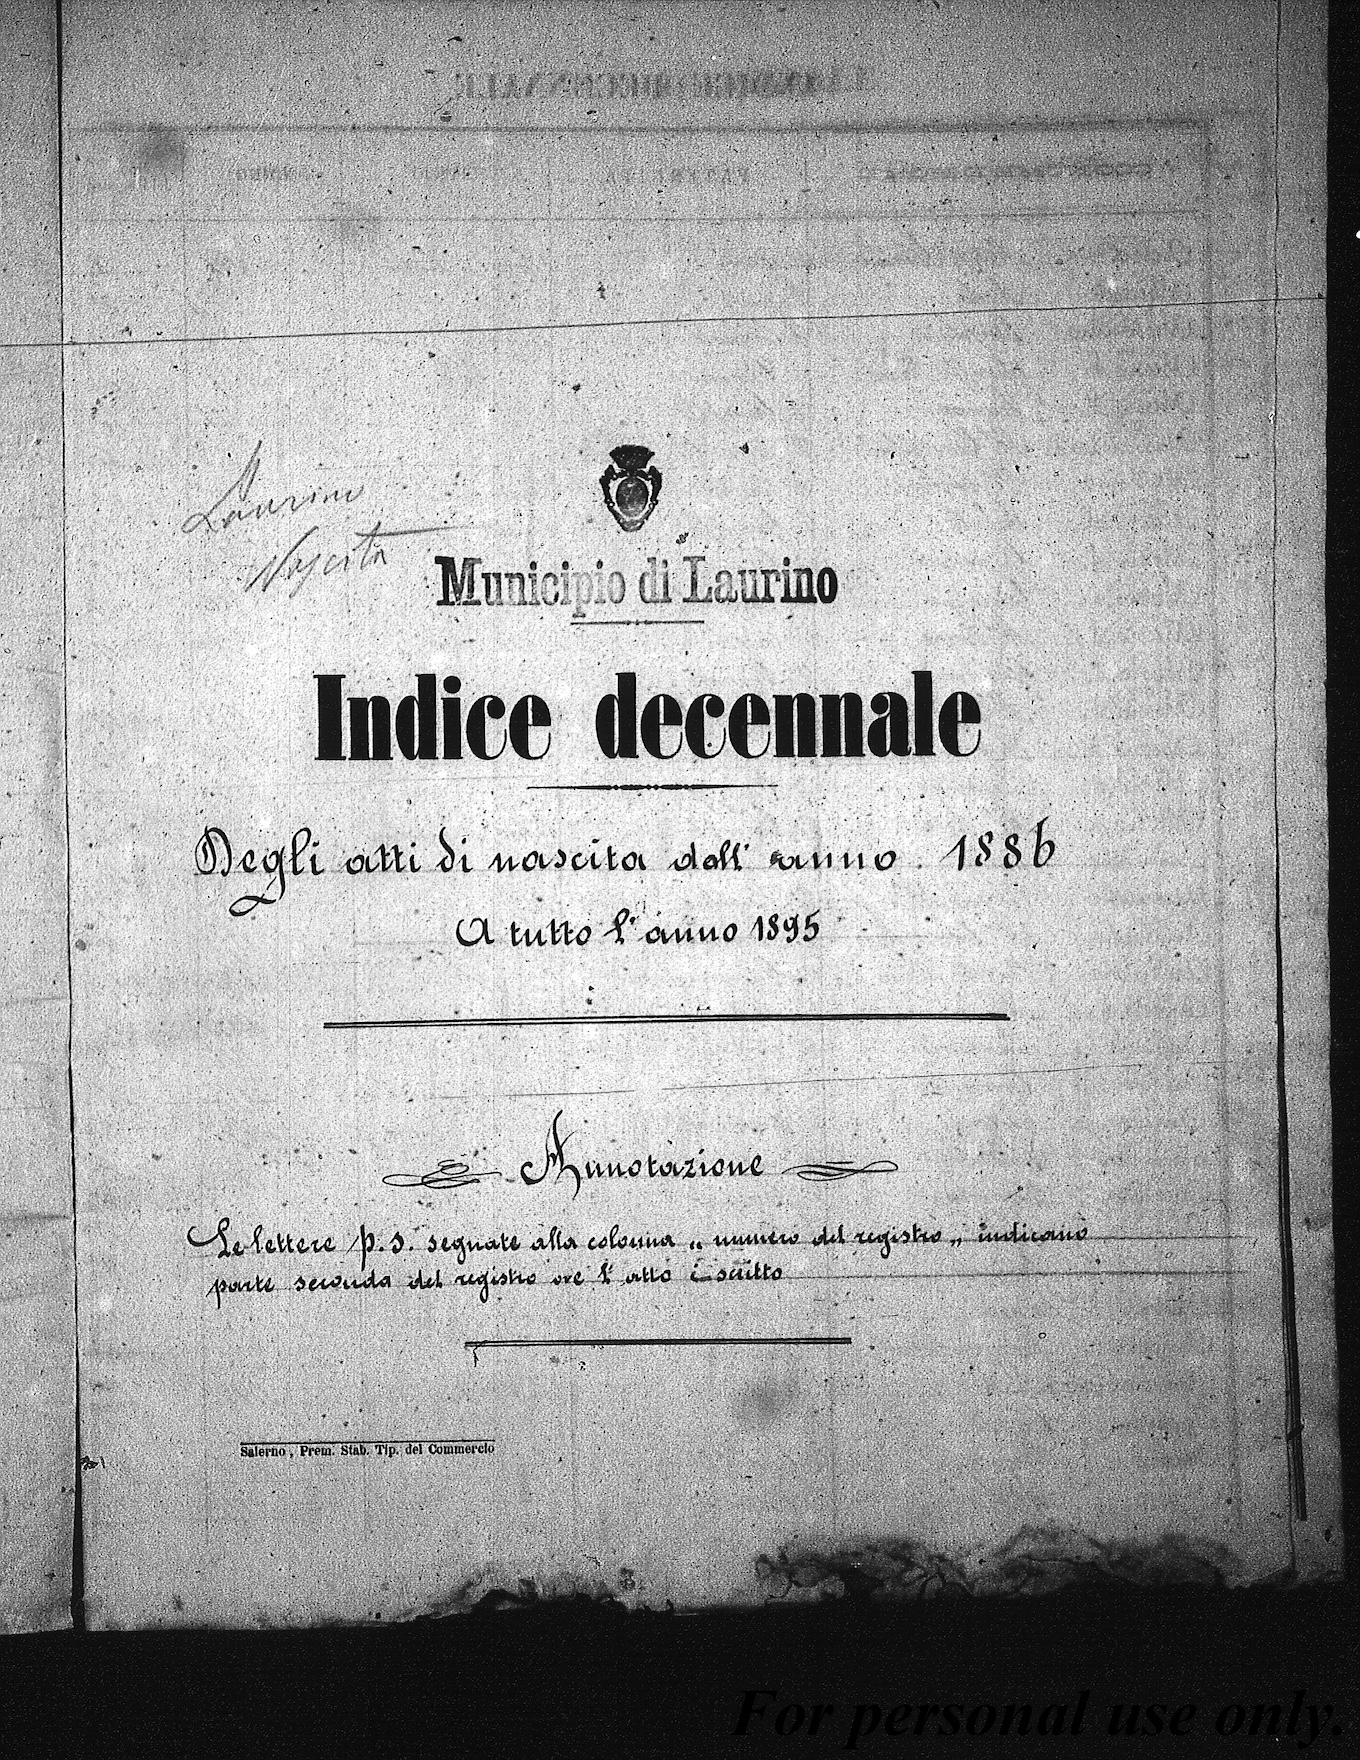 Laurino
Nascita
Municipio di Laurino
Indice decennale
Degli atti di nascita dall' anno 1886
A tutto l'anno 1895
Annotazione
Le lettere p. s. segnate alla colonna „ numero del registro „ indicano
parte seconda del registro ove l'atto è scritto
Salerno, Prem. Stab. Tip. del Commercio
For personal use only.